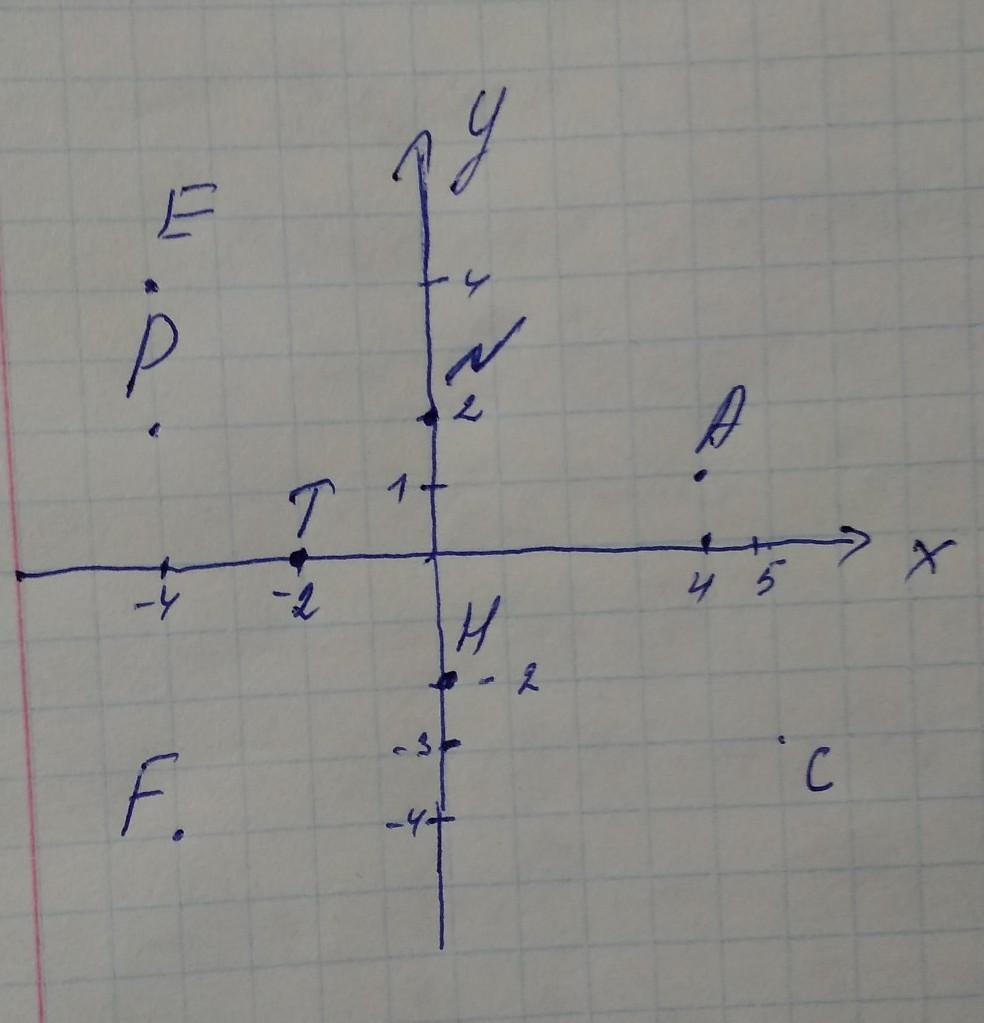 y
E
4
P
N
2
A
1
T
x
-4
-2
4
5
H
-2
-3
C
F
-4